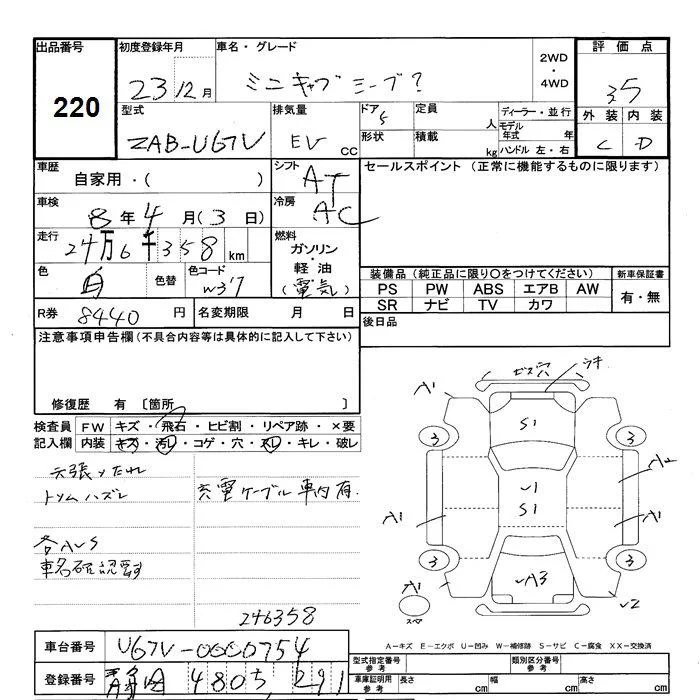 出品番号
220
初度登録年月
23 12月
車名・グレード
ミニキャブ ミーブ?
2WD
・
4WD
評価点
3.5
外装 内装
C D
型式
ZAB-U67V
排気量
EV CC
ドア
5
形状
定員
人
積載
kg
ディーラー・並行
モデル年式 年
ハンドル 左・右
車歴
自家用・( )
シフト
AT
冷房
AC
セールスポイント (正常に機能するものに限ります)
車検
8年 4月(3日)
走行
24万6千358 km
燃料
ガソリン
・
軽油
(電気)
色
白
色替
色コード
W37
装備品 (純正品に限り〇をつけてください)
PS PW ABS エアB AW
SR ナビ TV カワ
新車保証書
有・無
R券 8440 円
名変期限 月 日
後日品
注意事項申告欄 (不具合内容等は具体的に記入して下さい)
修復歴 有 〔箇所 〕
検査員記入欄
FW キズ・飛石・ヒビ割・リペア跡・×要
内装 キズ・汚レ・コゲ・穴・スレ・キレ・破レ
天張りたれ
トリムハズレ
充電ケーブル車内有.
各AUS
車名確認要す
246358
ビス穴
サキ
A1
S1
3
3
U1
S1
A2
A1
A1
3
3
UA3
A1
スペア
U2
A-キズ E-エクボ U-凹み W-補修跡 S-サビ C-腐食 XX-交換済
車台番号
U67V-0000754
登録番号
480 291
型式指定番号
参考
類別区分番号
参考
車庫証明用
参考
長さ cm
幅 cm
高さ cm